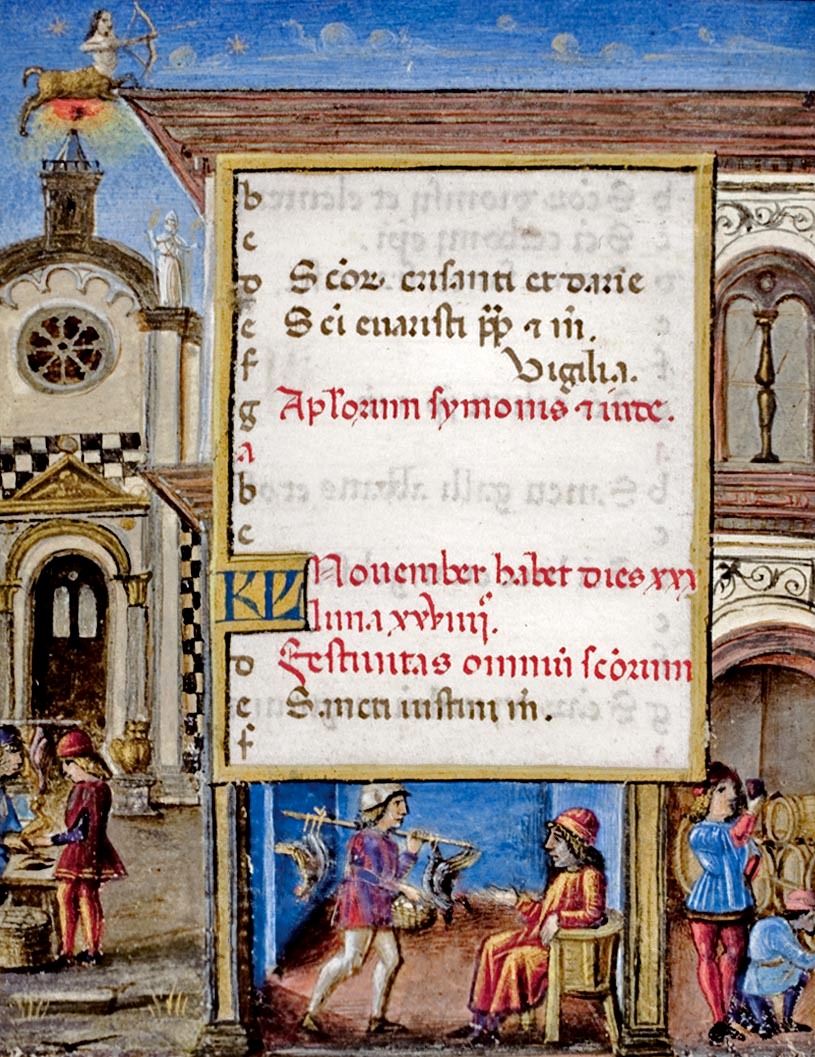 b
c
d Scōr. crisanti et darie
e Sci evaristi pp̄ ⁊ m̄.
f Vigilia.
g Apl'orum symonis ⁊ iude.
a
b
c
KL November habet dies xxx
luna xxviiij.
Festivitas omniū scōrum
d
e Sancti iustini m̄.
f